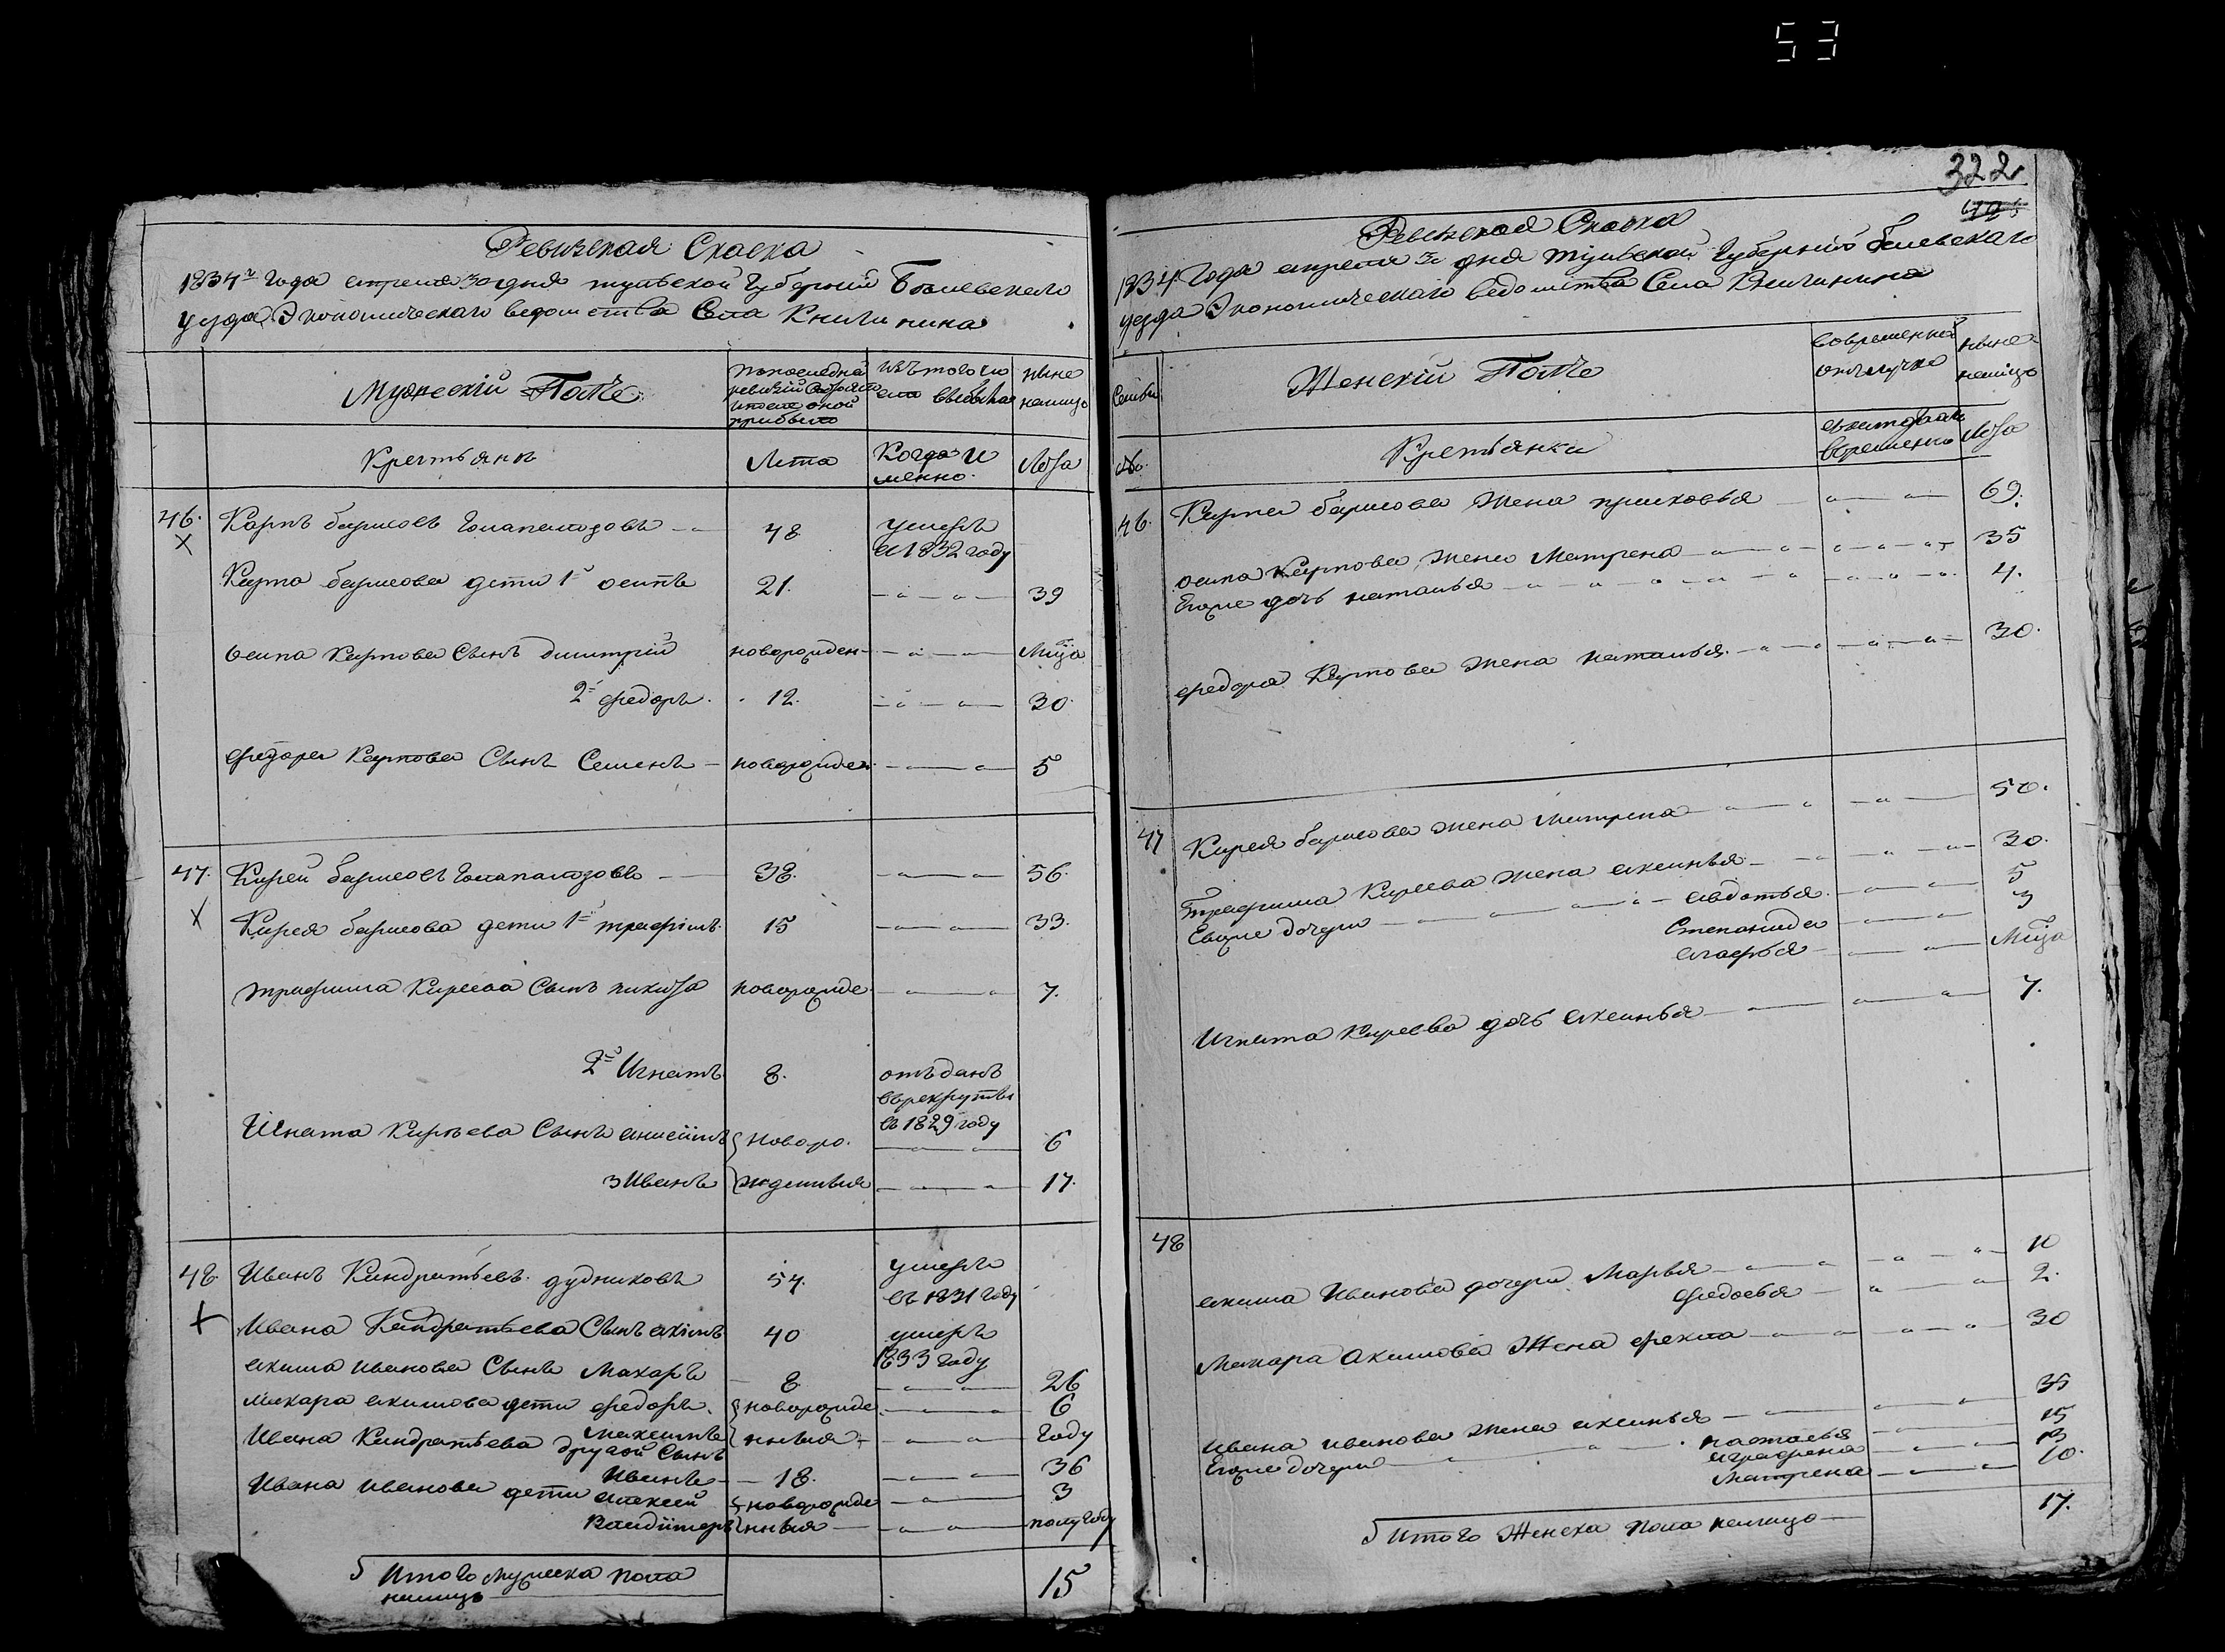 53
Ревизская Сказка
1834го года апреля 30 дня тульской Губернии Белевскаго
уезда Экономическаго ведомства Села Княгинина
Мужескій Полъ
попоследней
ревизіи состояло
и после оной
прибыло
изъ того чи
сла выбыло
ныне
налицо
Крестьянъ
Лета
Когда и
менно
Лета
46. Карпъ барисовъ 48. умеръ
в 1832 году
Карпа барисова дети 1й осипъ 21. 39
осипа карпова Сынъ дмитрій новорожден мца
2й федоръ. 12. 30.
федора Карпова Сынъ Семенъ новорожден. 5
47. Кирей барисовъ 38. 56.
Кирея барисова дети 1й трафимъ. 15 33.
трафима Киреева Сынъ никита новорожде 7.
2й Игнатъ. 8. отъданъ
врекруты
въ 1829 году
Игната Киреева Сынъ новоро. 6
3 Иванъ жденныя 17.
48. Иванъ Кандратьевъ. дудниковъ 54. умеръ
въ 1831 году
Ивана Кандратьева Сынъ акимъ 40 умеръ
1833 году
акима иванова Сынъ Макаръ 8. 26
макара акимова дети федоръ. новорожде 6
максимъ нныя году
Ивана Кандратьева другой Сынъ
Иванъ 18. 36
Ивана иванова дети алексей новорожде 3
нныя полугоду
Итого мужеска пола
налицо 15
322
Ревизская Сказка
1834 Года апреля 30 дня тульской Губерніи белевскаго
уезда Экономическаго ведомства Села Княгинина
Семьи
Женскій Полъ
вовременной
отлучке
ныне
налицо
Крестьянки
времени
Лета
46. Карпа барисова Жена прасковья 69.
осипа Карпова Жена Матрена 35
Егоже дочь наталья 4.
федора Карпова жена наталья. 30.
47 Кирея барисова жена матрена 50.
Трафима Киреева жена аксинья 30.
Евоже дочери авдотья 5
Степанида 3
агафья мца
Игната Киреева дочь аксинья 7.
48
акима Иванова дочери Марья 10
федосья 2.
Макара Акимова Жена фекла 30
Ивана иванова жена аксинья 35
Егоже дочери настасья 15
аграфена 13
Матрена 10.
Итого Женска пола налицо 17.